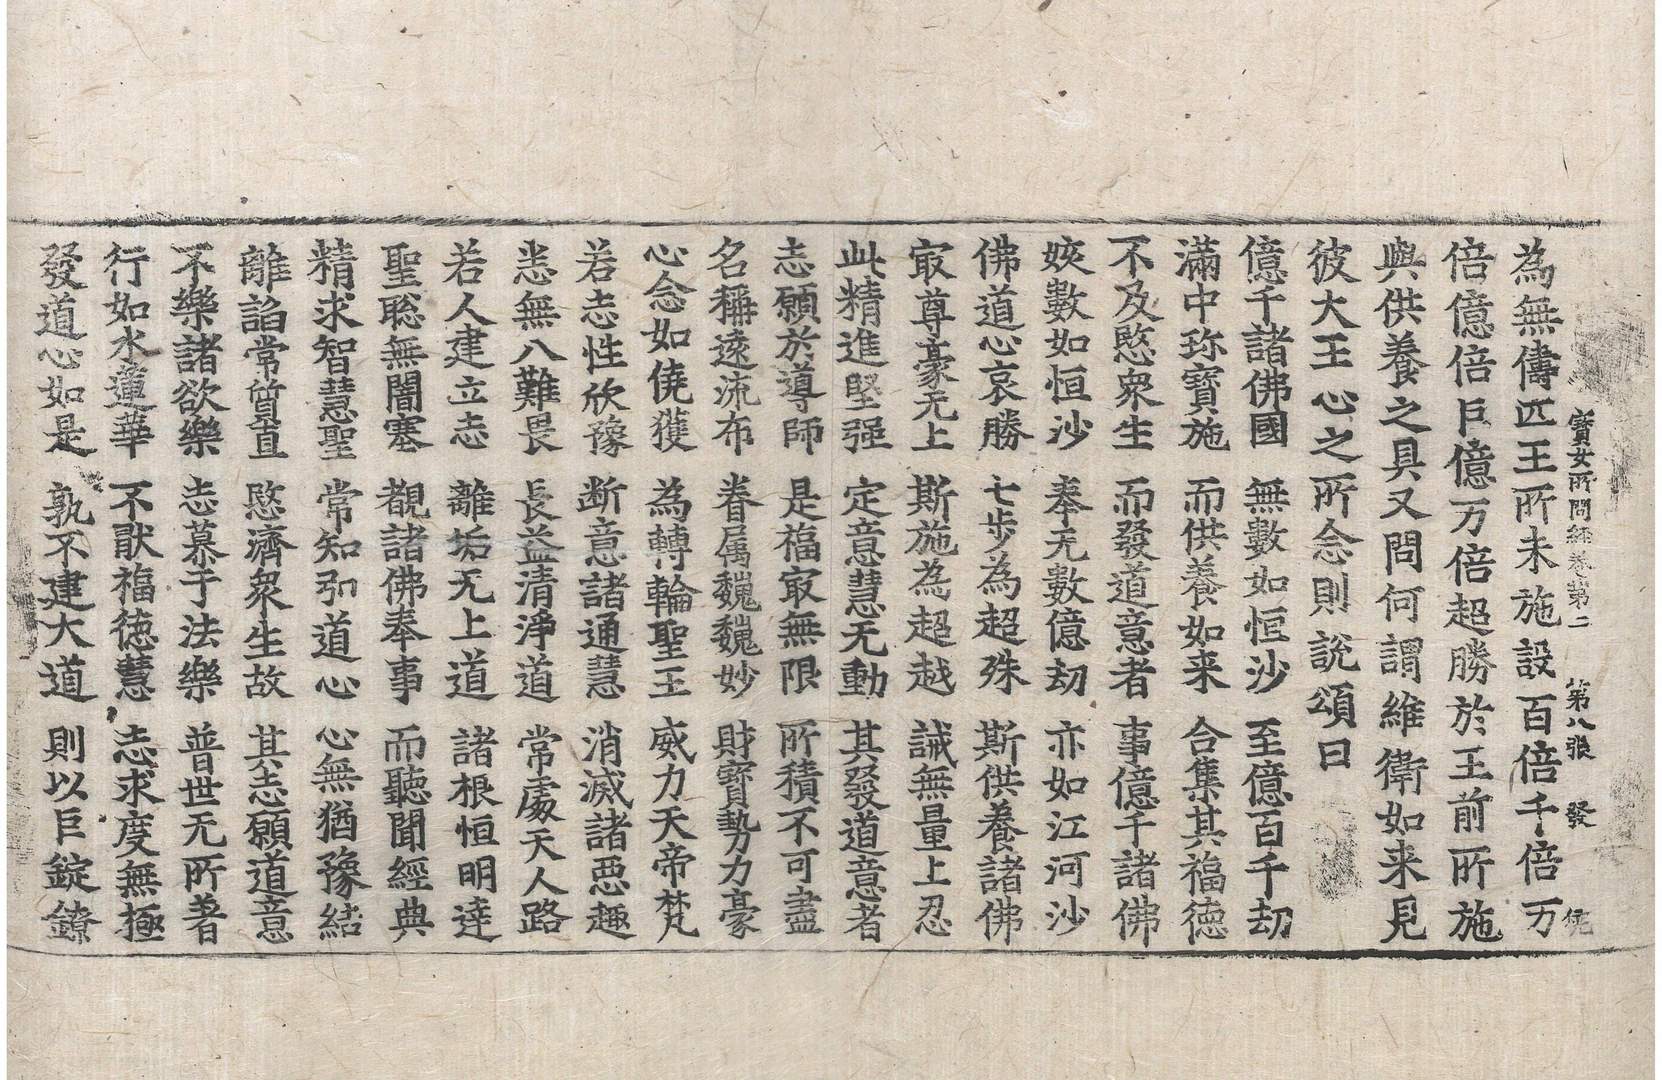 寶女所問經卷第二 第八張 發
為無儔匹王所未施設百倍千倍万
倍億倍巨億万倍超勝於王前所施
與供養之具又問何謂維衛如来見
彼大王心之所念則說頌曰
億千諸佛國 無數如恒沙 至億百千劫
滿中珎寶施 而供養如来 合集其福德
不及愍衆生 而發道意者 事億千諸佛
姟數如恒沙 奉无數億劫 亦如江河沙
佛道心哀勝 七步為超殊 斯供養諸佛
㝡尊豪无上 斯施為超越 誡無量上忍
此精進堅强 定意慧无動 其發道意者
志願於導師 是福㝡無限 所積不可盡
名稱遠流布 眷屬巍巍妙 財寶勢力豪
心念如僥獲 為轉輪聖王 威力天帝梵
若志性欣豫 断意諸通慧 消滅諸惡趣
恙無八難畏 長益清淨道 常處天人路
若人建立志 離垢无上道 諸根恒明達
聖聡無闇塞 覩諸佛奉事 而聽聞經典
精求智慧聖 常知弘道心 心無猶豫結
離諂常質直 愍濟衆生故 其志願道意
不樂諸欲樂 志慕于法樂 普世无所著
行如水蓮華 不猒福徳慧 志求度無極
發道心如是 孰不建大道 則以巨錠鐐